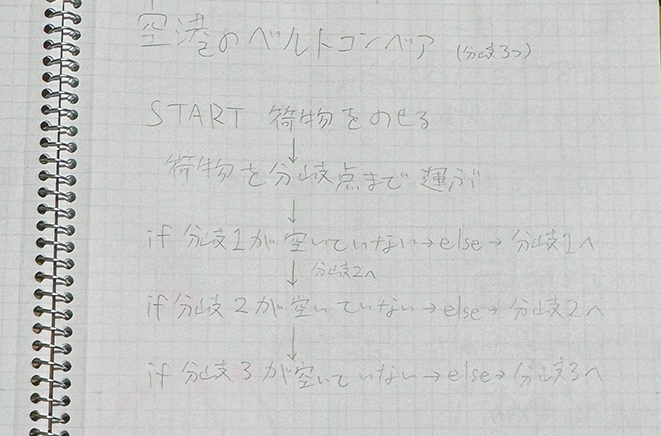 空港のベルトコンベア (分岐3つ)
START 荷物をのせる
↓
荷物を分岐点まで運ぶ
↓
if 分岐1が空いていない→else→分岐1へ
↓ 分岐2へ
if 分岐2が空いていない→else→分岐2へ
↓
if 分岐3が空いていない→else→分岐3へ